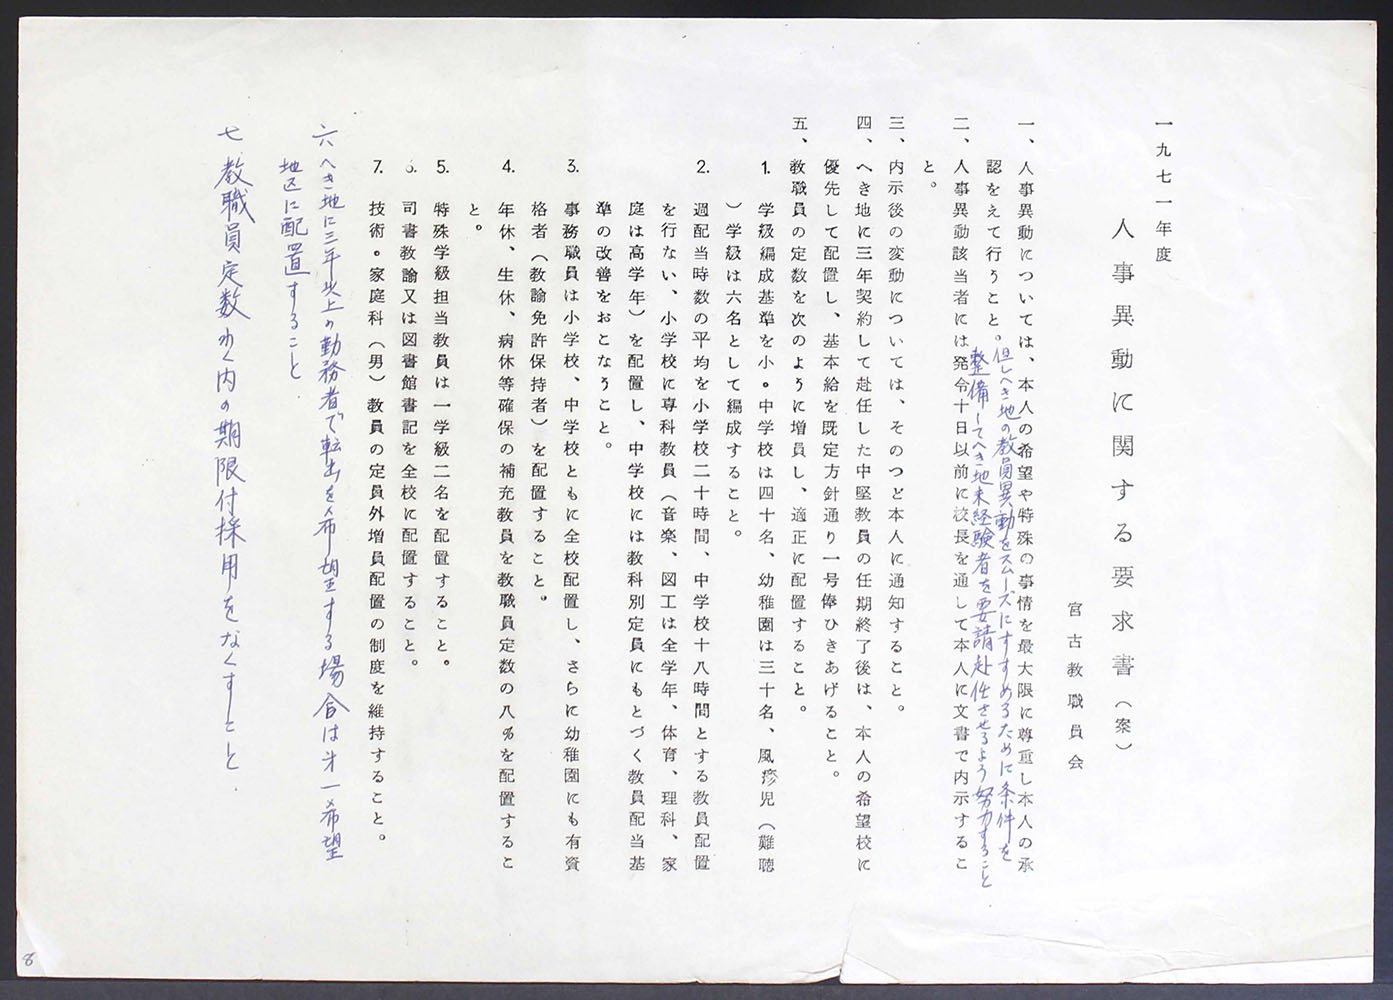 一九七一年度
人事異動に関する要求書(案)
宮古教職員会
一、人事異動については、本人の希望や特殊の事情を最大限に尊重し本人の承
認をえて行うこと。
但しへき地の教員異動をスムーズにすすめるために条件を
整備してへき地未経験者を要請赴任させるよう努力すること
二、人事異動該当者には発令十日以前に校長を通して本人に文書で内示するこ
と。
三、内示後の変動については、そのつど本人に通知すること。
四、へき地に三年契約して赴任した中堅教員の任期終了後は、本人の希望校に
優先して配置し、基本給を既定方針通り一号俸ひきあげること。
五、教職員の定数を次のように増員し、適正に配置すること。
1. 学級編成基準を小。中学校は四十名、幼稚園は三十名、風疹児(難聴
)学級は六名として編成すること。
2. 週配当時数の平均を小学校二十時間、中学校十八時間とする教員配置
を行ない、小学校に専科教員(音楽、図工は全学年、体育、理科、家
庭は高学年)を配置し、中学校には教科別定員にもとづく教員配当基
準の改善をおこなうこと。
3. 事務職員は小学校、中学校ともに全校配置し、さらに幼稚園にも有資
格者(教諭免許保持者)を配置すること。
4. 年休、生休、病休等確保の補充教員を教職員定数の八%を配置するこ
と。
5. 特殊学級担当教員は一学級二名を配置すること。
6. 司書教諭又は図書館書記を全校に配置すること。
7. 技術。家庭科(男)教員の定員外増員配置の制度を維持すること。
六 へき地に三年以上の勤務者で転出を希望する場合は才一希望
地区に配置すること.
七 教職員定数わく内の期限付採用をなくすこと.
8